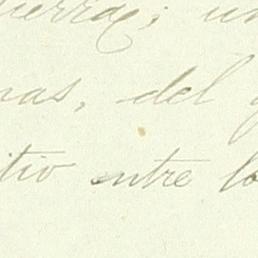 uerra; un
nas, del g
itio entre lo